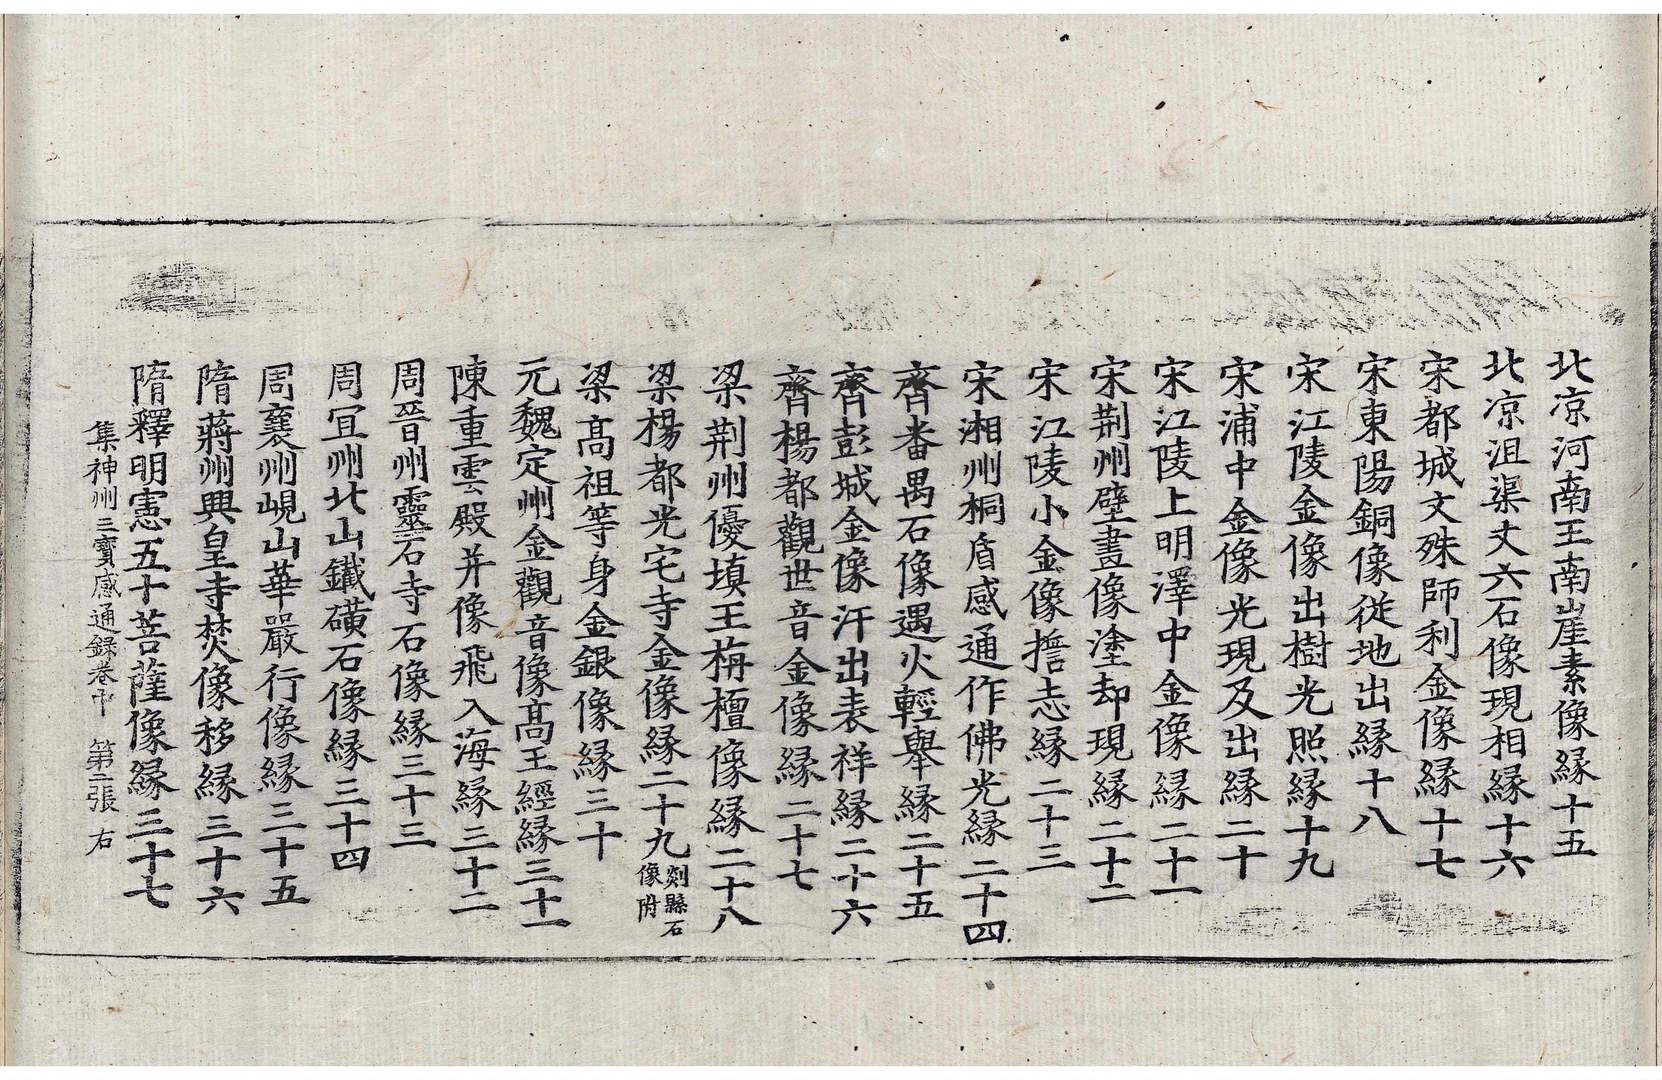 北凉河南王南崖素像縁十五
北凉沮渠丈六石像現相縁十六
宋都城文殊師利金像縁十七
宋東陽銅像從地出縁十八
宋江陵金像出樹光照縁十九
宋浦中金像光現及出縁二十
宋江陵上明澤中金像縁二十一
宋荆州壁畫像塗却現縁二十二
宋江陵小金像擔志縁二十三
宋湘州桐盾感通作佛光縁二十四
齊番禺石像遇火輕舉縁二十五
齊彭城金像汗出表祥縁二十六
齊楊都觀世音金像縁二十七
梁荆州優填王栴檀像縁二十八
梁楊都光宅寺金像縁二十九剡縣石像附
梁髙祖等身金銀像縁三十
元魏定州金觀音像髙王經縁三十一
陳重雲殿并像飛入海縁三十二
周晉州靈石寺石像縁三十三
周冝州北山鐵磺石像縁三十四
周襄州峴山華嚴行像縁三十五
隋蔣州興皇寺焚像移縁三十六
隋釋明憲五十菩薩像縁三十七
集神州三寶感通録卷中 第二張 右